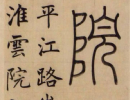 院
平江路
淮雲院